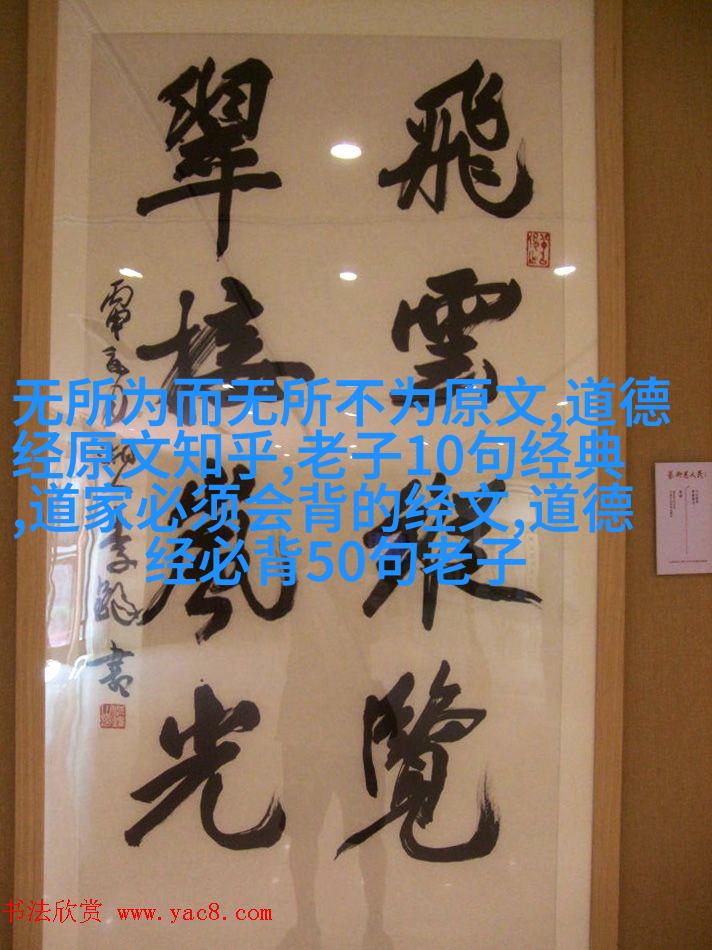 飛雲縱覽
翠嵐光
李鐸書
无所为而无所不为原文,道德
经原文知乎,老子10句经典
,道家必须会背的经文,道德
经必背50句老子
书法欣赏 www.yac8.com